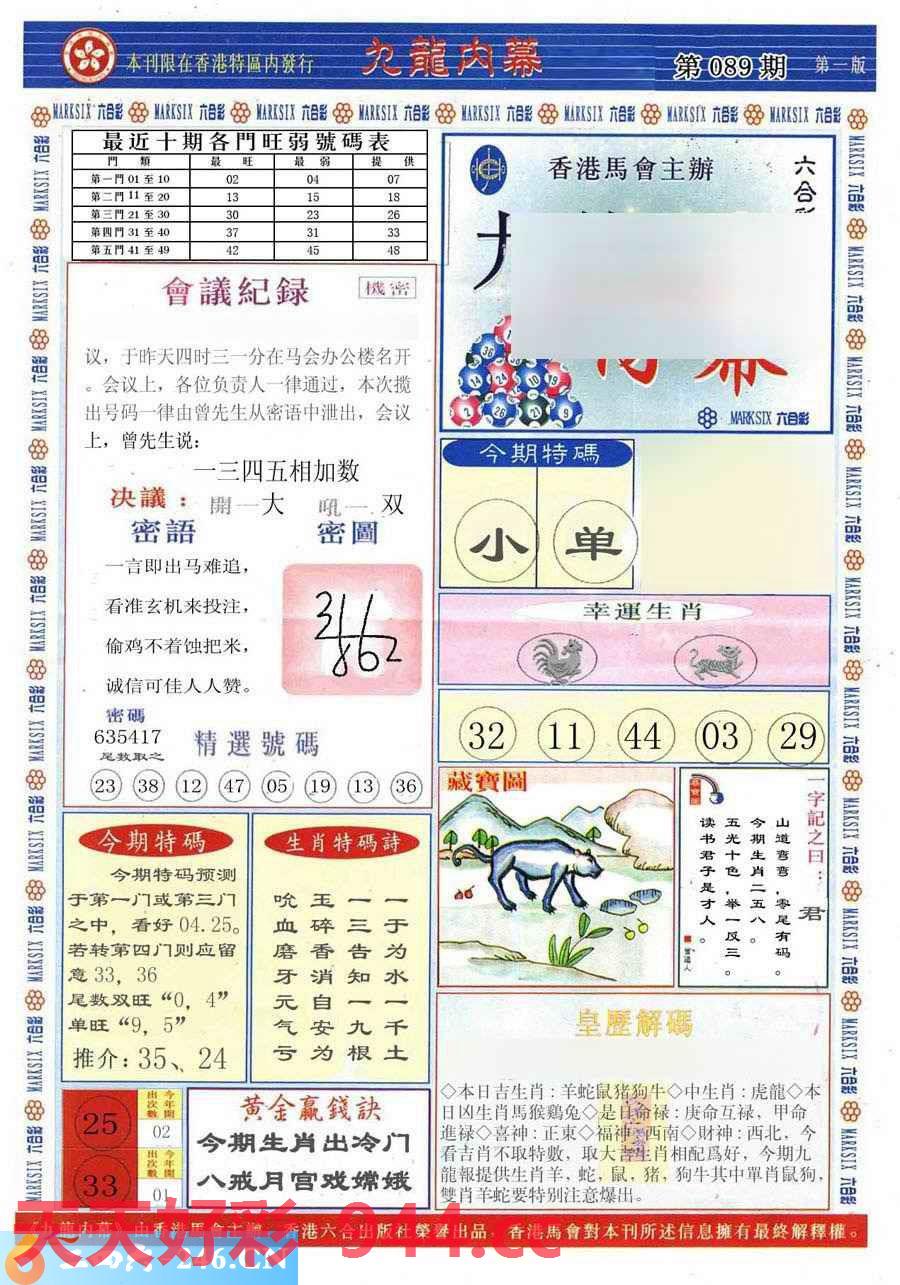 本刊限在香港特區内發行
九龍内幕
第 089 期
第一版
MARKSIX 六合彩
最近十期各門旺弱號碼表
門 類 最 旺 最 弱 提 供
第一門 01 至 10 02 04 07
第二門 11 至 20 13 15 18
第三門 21 至 30 30 23 26
第四門 31 至 40 37 31 33
第五門 41 至 49 42 45 48
會議紀録
機密
议，于昨天四时三一分在马会办公楼名开
。会议上，各位负责人一律通过，本次揽
出号码一律由曾先生从密语中泄出，会议
上，曾先生说：
一三四五相加数
决議：開一大 吼一 双
密語
密圖
一言即出马难追，
看准玄机来投注，
偷鸡不着蚀把米，
诚信可佳人人赞。
密碼
635417
尾数取之
精選號碼
23 38 12 47 05 19 13 36
香港馬會主辦
六合彩
内幕
MARKSIX 六合彩
今期特碼
小 单
幸運生肖
32 11 44 03 29
藏寶圖
一字記之曰：君
山道弯弯，零尾有码。
今期生肖二五八。
五光十色，举一反三。
读书君子是才人。
今期特碼
今期特码预测
于第一门或第三门
之中，看好 04.25。
若转第四门则应留
意 33，36
尾数双旺“0，4”
单旺“9，5”
推介：35、24
生肖特碼詩
吮 玉 一 一
血 碎 三 于
磨 香 告 为
牙 消 知 水
元 自 一 一
气 安 九 千
亏 为 根 土
皇歷解碼
◇本日吉生肖：羊蛇鼠猪狗牛◇中生肖：虎龍◇本
日凶生肖馬猴鷄兔◇是日命禄：庚命互禄，甲命
進禄◇喜神：正東◇福神：西南◇財神：西北，今
看吉肖不取特數，取大吉生肖相配爲好，今期九
龍報提供生肖羊，蛇，鼠，猪，狗牛其中單肖鼠狗，
雙肖羊蛇要特别注意爆出。
25
今年開
出次數
02
33
今年開
出次數
01
黄金赢錢訣
今期生肖出冷门
八戒月宫戏嫦娥
《九龍内幕》由香港馬會主辦，香港六合出版社榮譽出品，香港馬會對本刊所述信息擁有最終解釋權。
天天好彩 944.cc
246.CN